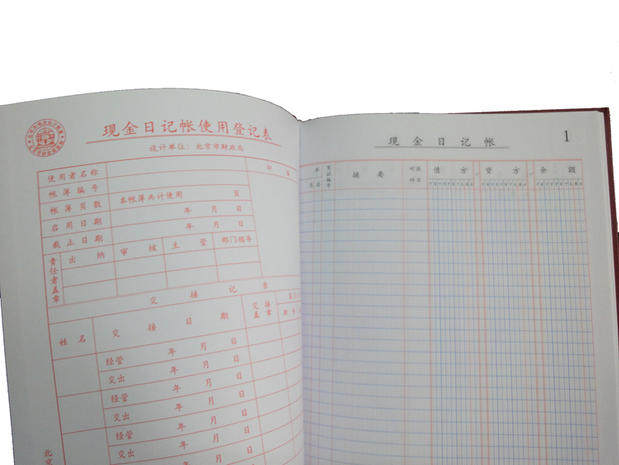 现金日记帐使用登记表
设计单位：北京市财政局
使用者名称 印鉴
帐簿编号
帐簿页数 本帐簿共计使用 页
启用日期 年 月 日
截止日期 年 月 日
责任者盖章 出纳 审核 主管 部门领导
交接记录
姓名 交接日期 交接盖章
经管 年 月 日
交出 年 月 日
经管 年 月 日
交出 年 月 日
经管 年 月 日
交出 年 月 日
年 月 日
北京
现金日记帐 1
年 摘要 对方科目 借方 贷方 余额
月 日